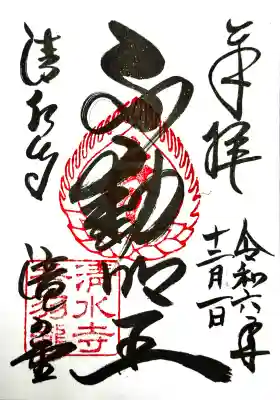 奉拝
令和六年
十二月一日
不動明王
清水寺
瀧の堂
清水寺